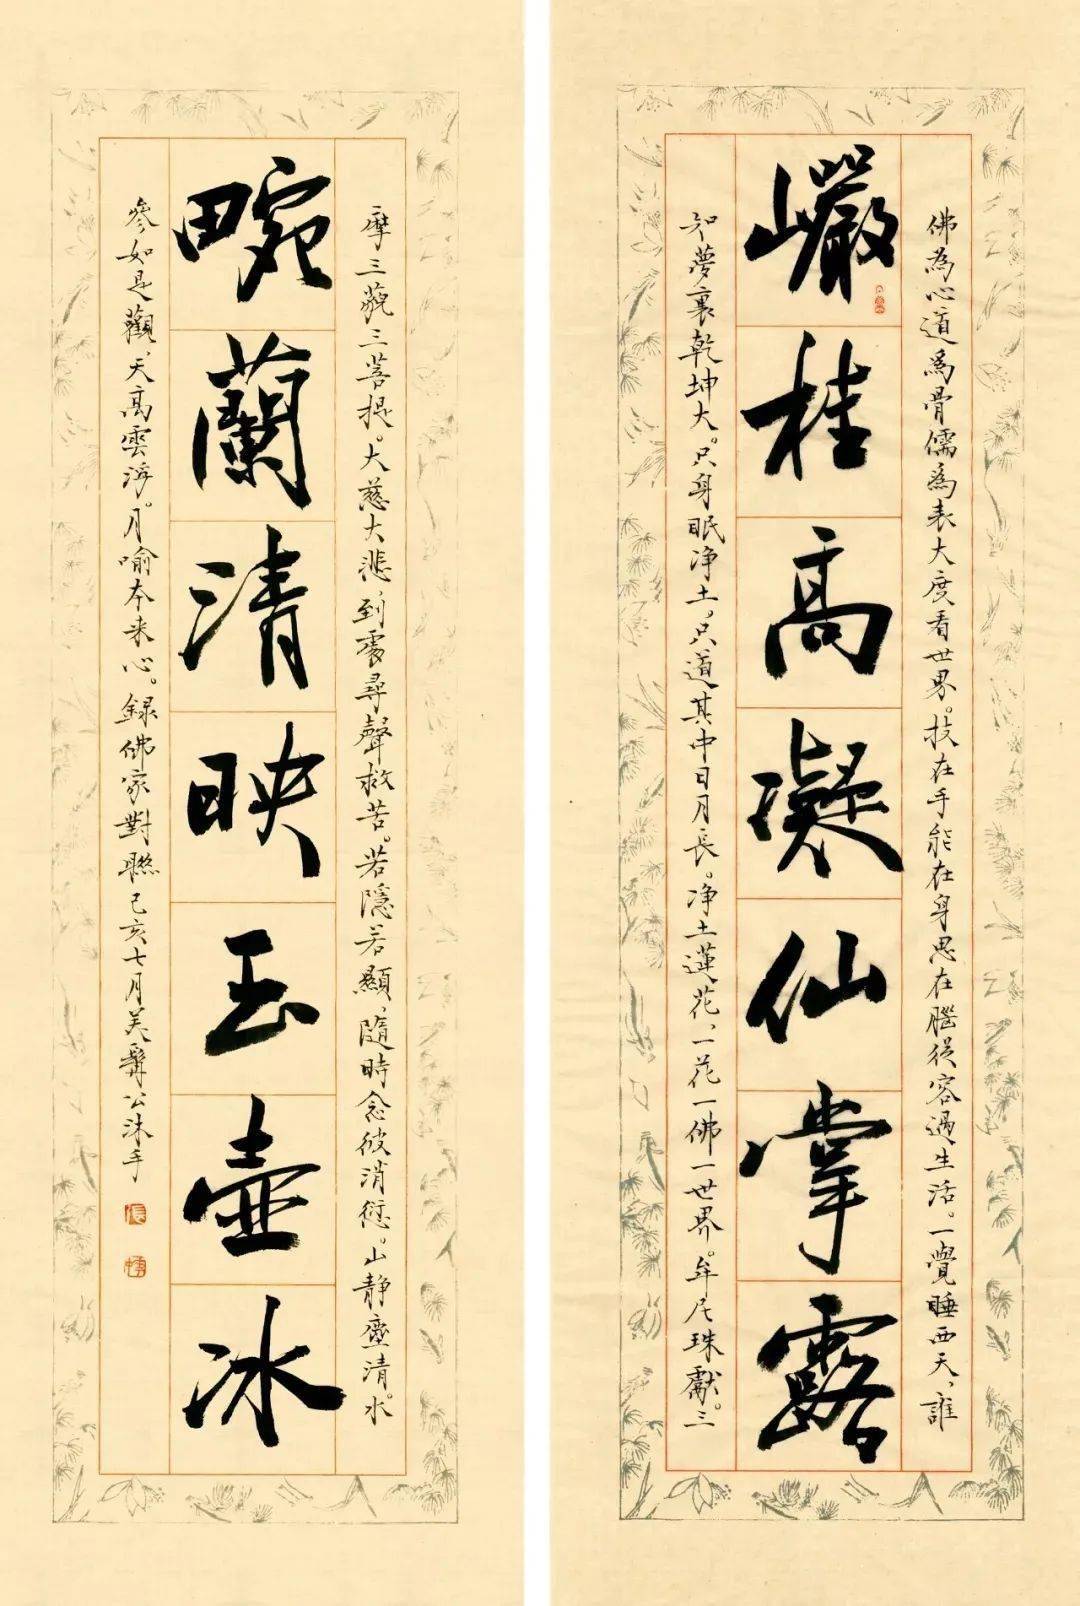 佛為心道為骨儒為表大度看世界。技在手能在身思在腦從容過生活。一覺睡西天、誰
巖桂高凝仙掌露
知夢裏乾坤大。只身眠净土。只道其中日月長。净土蓮花、一花一佛一世界。牟尼珠獻。三
摩三藐三菩提。大慈大悲、到處尋聲救苦。若隱若顯、隨時念彼消愆。山靜塵清。水
畹蘭清映玉壺冰
參如是觀、天高雲浮。月喻本来心。録佛家對聯己亥七月美髯公沐手